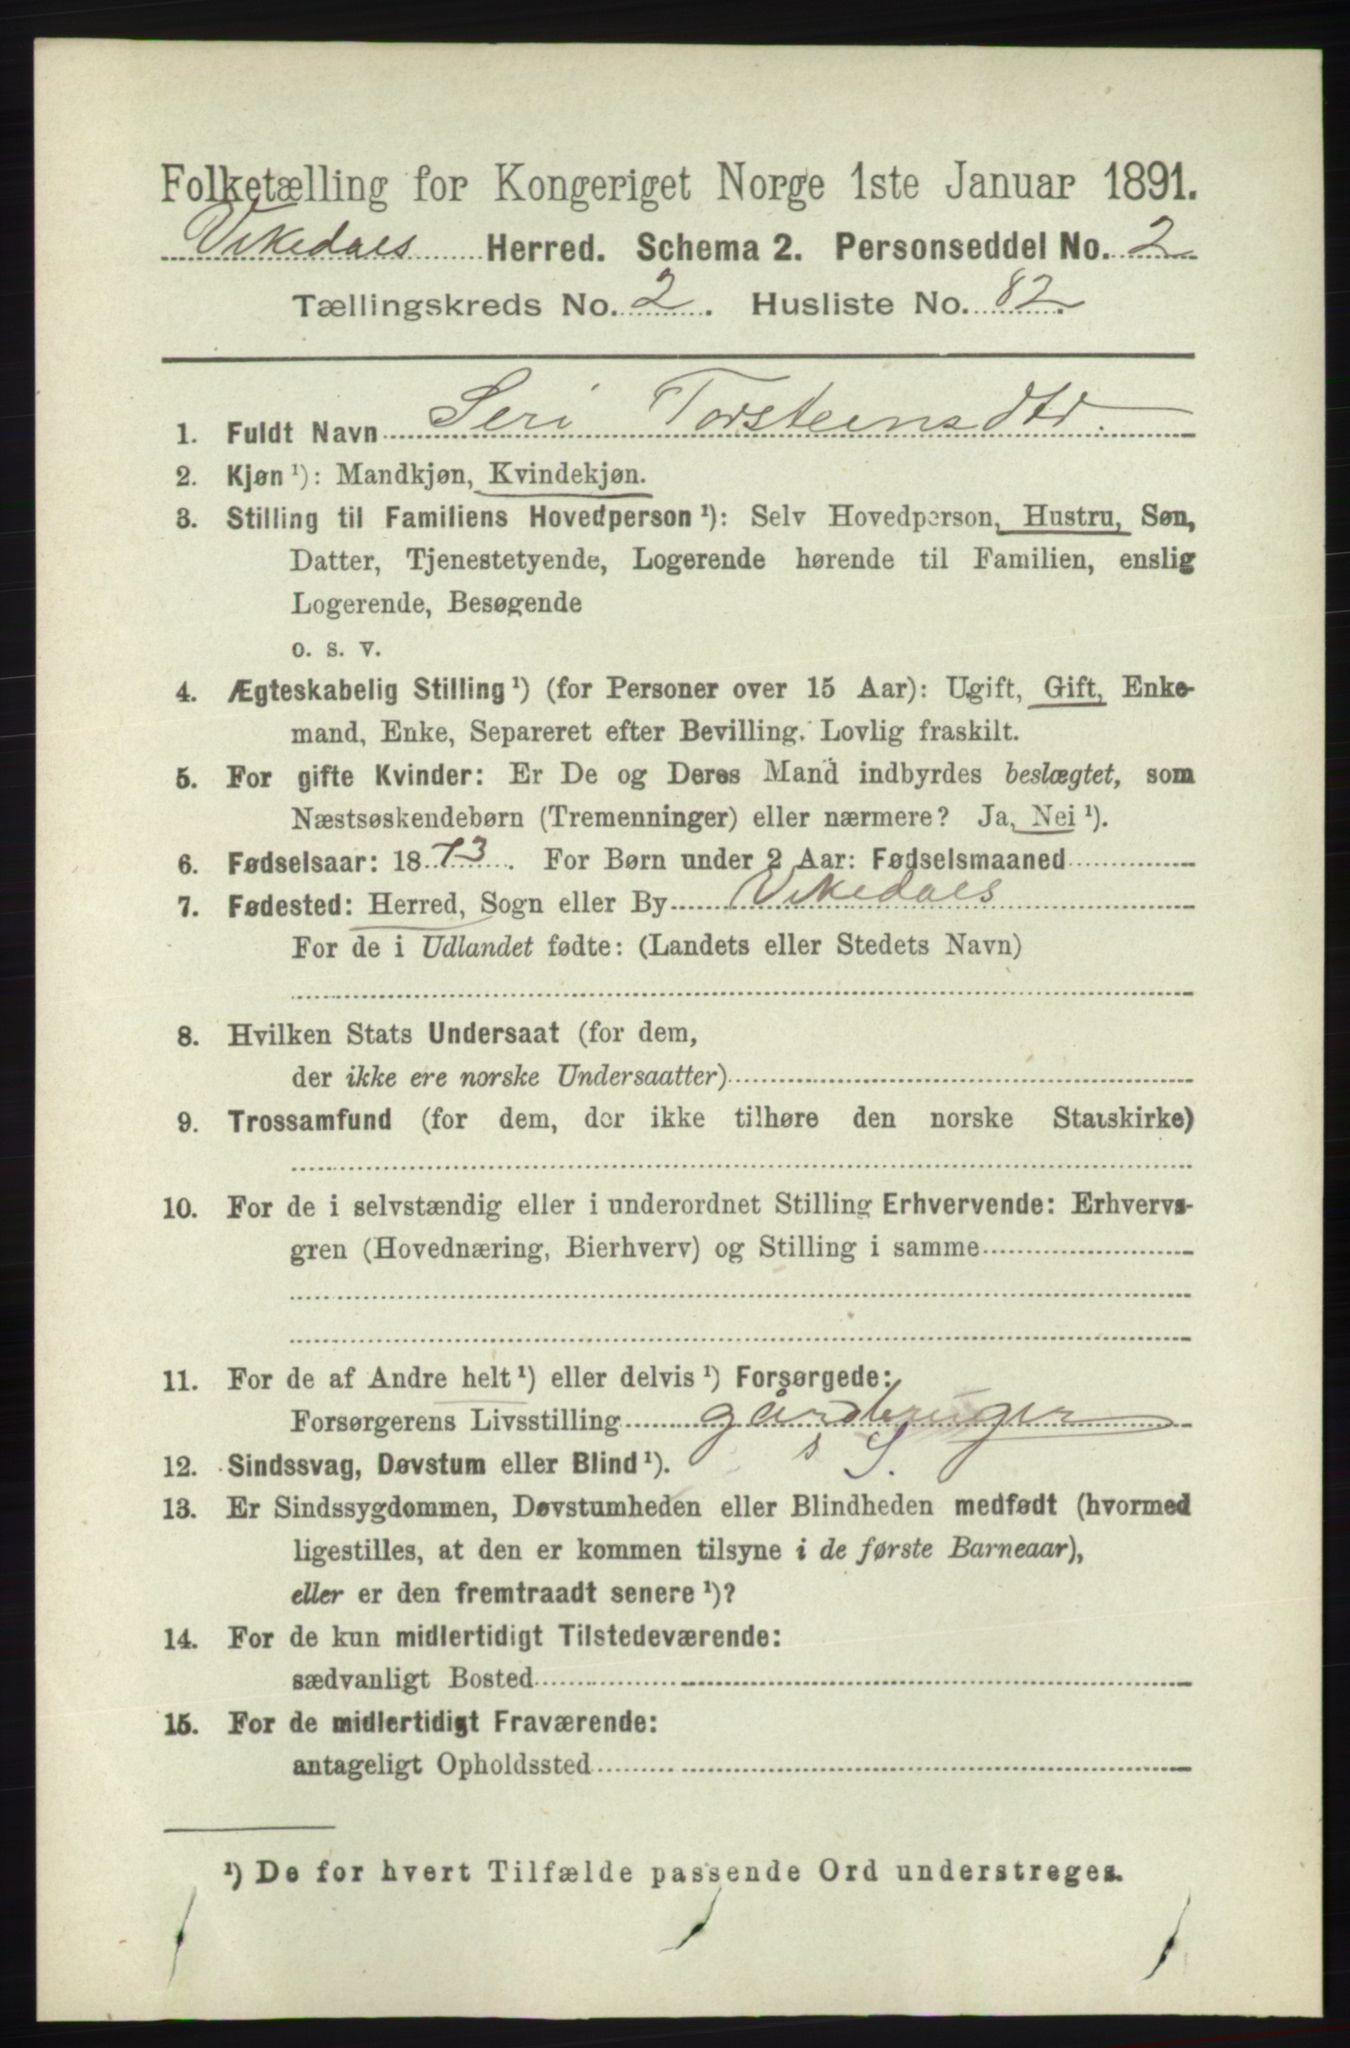 Folketælling for Kongeriget Norge 1ste Januar 1891.
Vikedals Herred. Schema 2. Personseddel No. 2
Tællingskreds No. 2. Husliste No. 82.
1. Fuldt Navn Seri Torsteinsdtr.
2. Kjøn ¹): Mandkjøn, Kvindekjøn.
3. Stilling til Familiens Hovedperson ¹): Selv Hovedperson, Hustru, Søn,
Datter, Tjenestetyende, Logerende hørende til Familien, enslig
Logerende, Besøgende
o. s. v.
4. Ægteskabelig Stilling ¹) (for Personer over 15 Aar): Ugift, Gift, Enke-
mand, Enke, Separeret efter Bevilling. Lovlig fraskilt.
5. For gifte Kvinder: Er De og Deres Mand indbyrdes beslægtet, som
Næstsøskendebørn (Tremenninger) eller nærmere? Ja, Nei ¹).
6. Fødselsaar: 1873. For Børn under 2 Aar: Fødselsmaaned
7. Fødested: Herred, Sogn eller By Vikedals
For de i Udlandet fødte: (Landets eller Stedets Navn)
8. Hvilken Stats Undersaat (for dem,
der ikke ere norske Undersaatter)
9. Trossamfund (for dem, der ikke tilhøre den norske Statskirke)
10. For de i selvstændig eller i underordnet Stilling Erhvervende: Erhvervs-
gren (Hovednæring, Bierhverv) og Stilling i samme
11. For de af Andre helt ¹) eller delvis ¹) Forsørgede:
Forsørgerens Livsstilling gårdbruger
s S.
12. Sindssvag, Døvstum eller Blind ¹).
13. Er Sindssygdommen, Døvstumheden eller Blindheden medfødt (hvormed
ligestilles, at den er kommen tilsyne i de første Barneaar),
eller er den fremtraadt senere ¹)?
14. For de kun midlertidigt Tilstedeværende:
sædvanligt Bosted
15. For de midlertidigt Fraværende:
antageligt Opholdssted
¹) De for hvert Tilfælde passende Ord understreges.